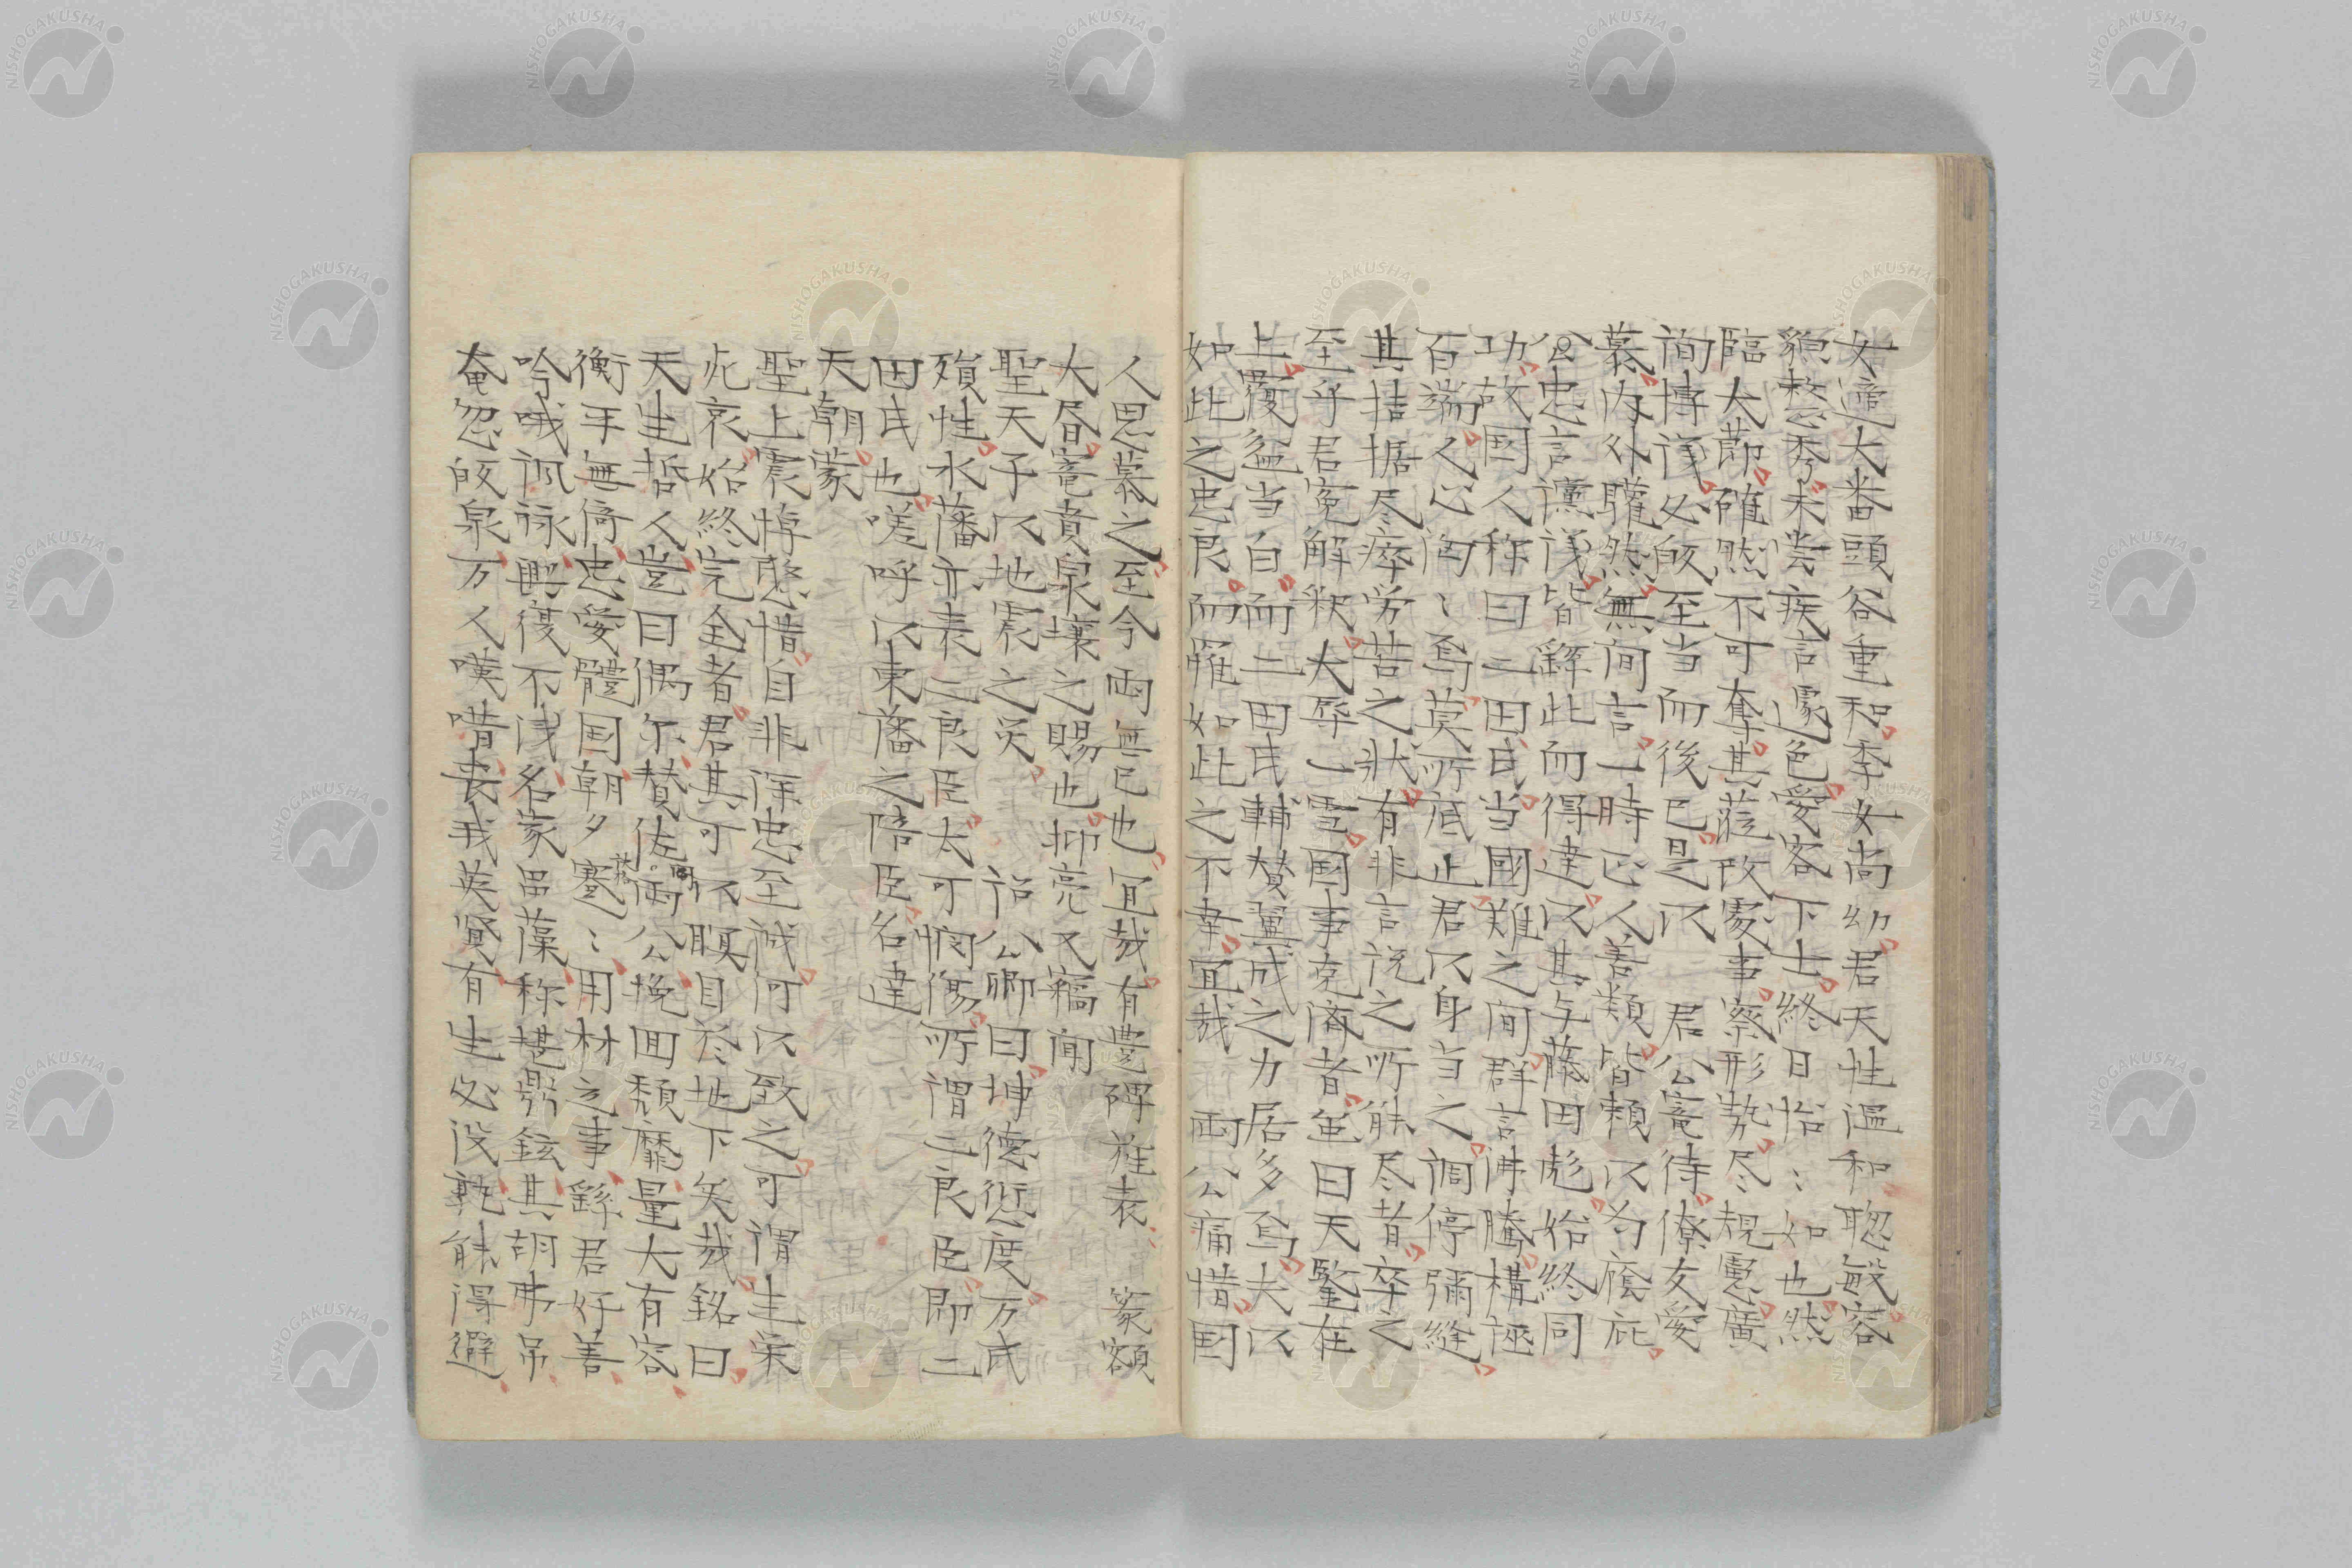 女適大番頭谷重和季女尚幼君天性温和聡敏容
貌整秀未嘗疾言遽色愛客下士終日怡〻如也然
臨大節確然不可奪其莅政処事察形勢尽規慮廣
詢博議必皈至当而後已是以 君公寵待僚友愛
慕内外驩然無間言一時正人善類皆頼以為廕庇
公忠言讜議皆繇此而得達以其与藤田彪始終同
功故国人称曰二田氏当國難之間群言沸騰構誣
百端人心洶〻焉莫所底止君以身当之調停彌縫
其拮据尽瘁労苦之状有非言説之所能尽者卒之
至乎君冤解釈大辱一雪国事克済者虽曰天鑒在
上覆盆当白而二田氏輔賛翼成之力居多焉夫以
如此之忠良而罹如此之不幸宜哉 両公痛惜国
人思慕之至今両無已也宜哉有豊碑旌表 篆額
大尽寵賁泉壌之賜也抑亮又竊聞
聖天子以地震之災 詔公卿曰坤徳愆度万民
殞性水藩亦喪二良臣太可憫傷所謂二良臣即二
田氏也嗟呼以東藩之陪臣名達
天朝蒙
聖上震悼愍惜自非深忠至誠何以致之可謂生栄
死哀始終完全者君其可以瞑目於地下矣哉銘曰
天生哲人豈曰偶尓賛佐両公挽回頽靡量大有容
衡平無倚忠愛體国朝夕蹇〻用材立事繇君好善
吟哦諷詠興復不浅名家出藻称堪鼎鉉其胡弗弔
奄忽皈泉万人嘆惜喪我英賢有生必没孰能得避